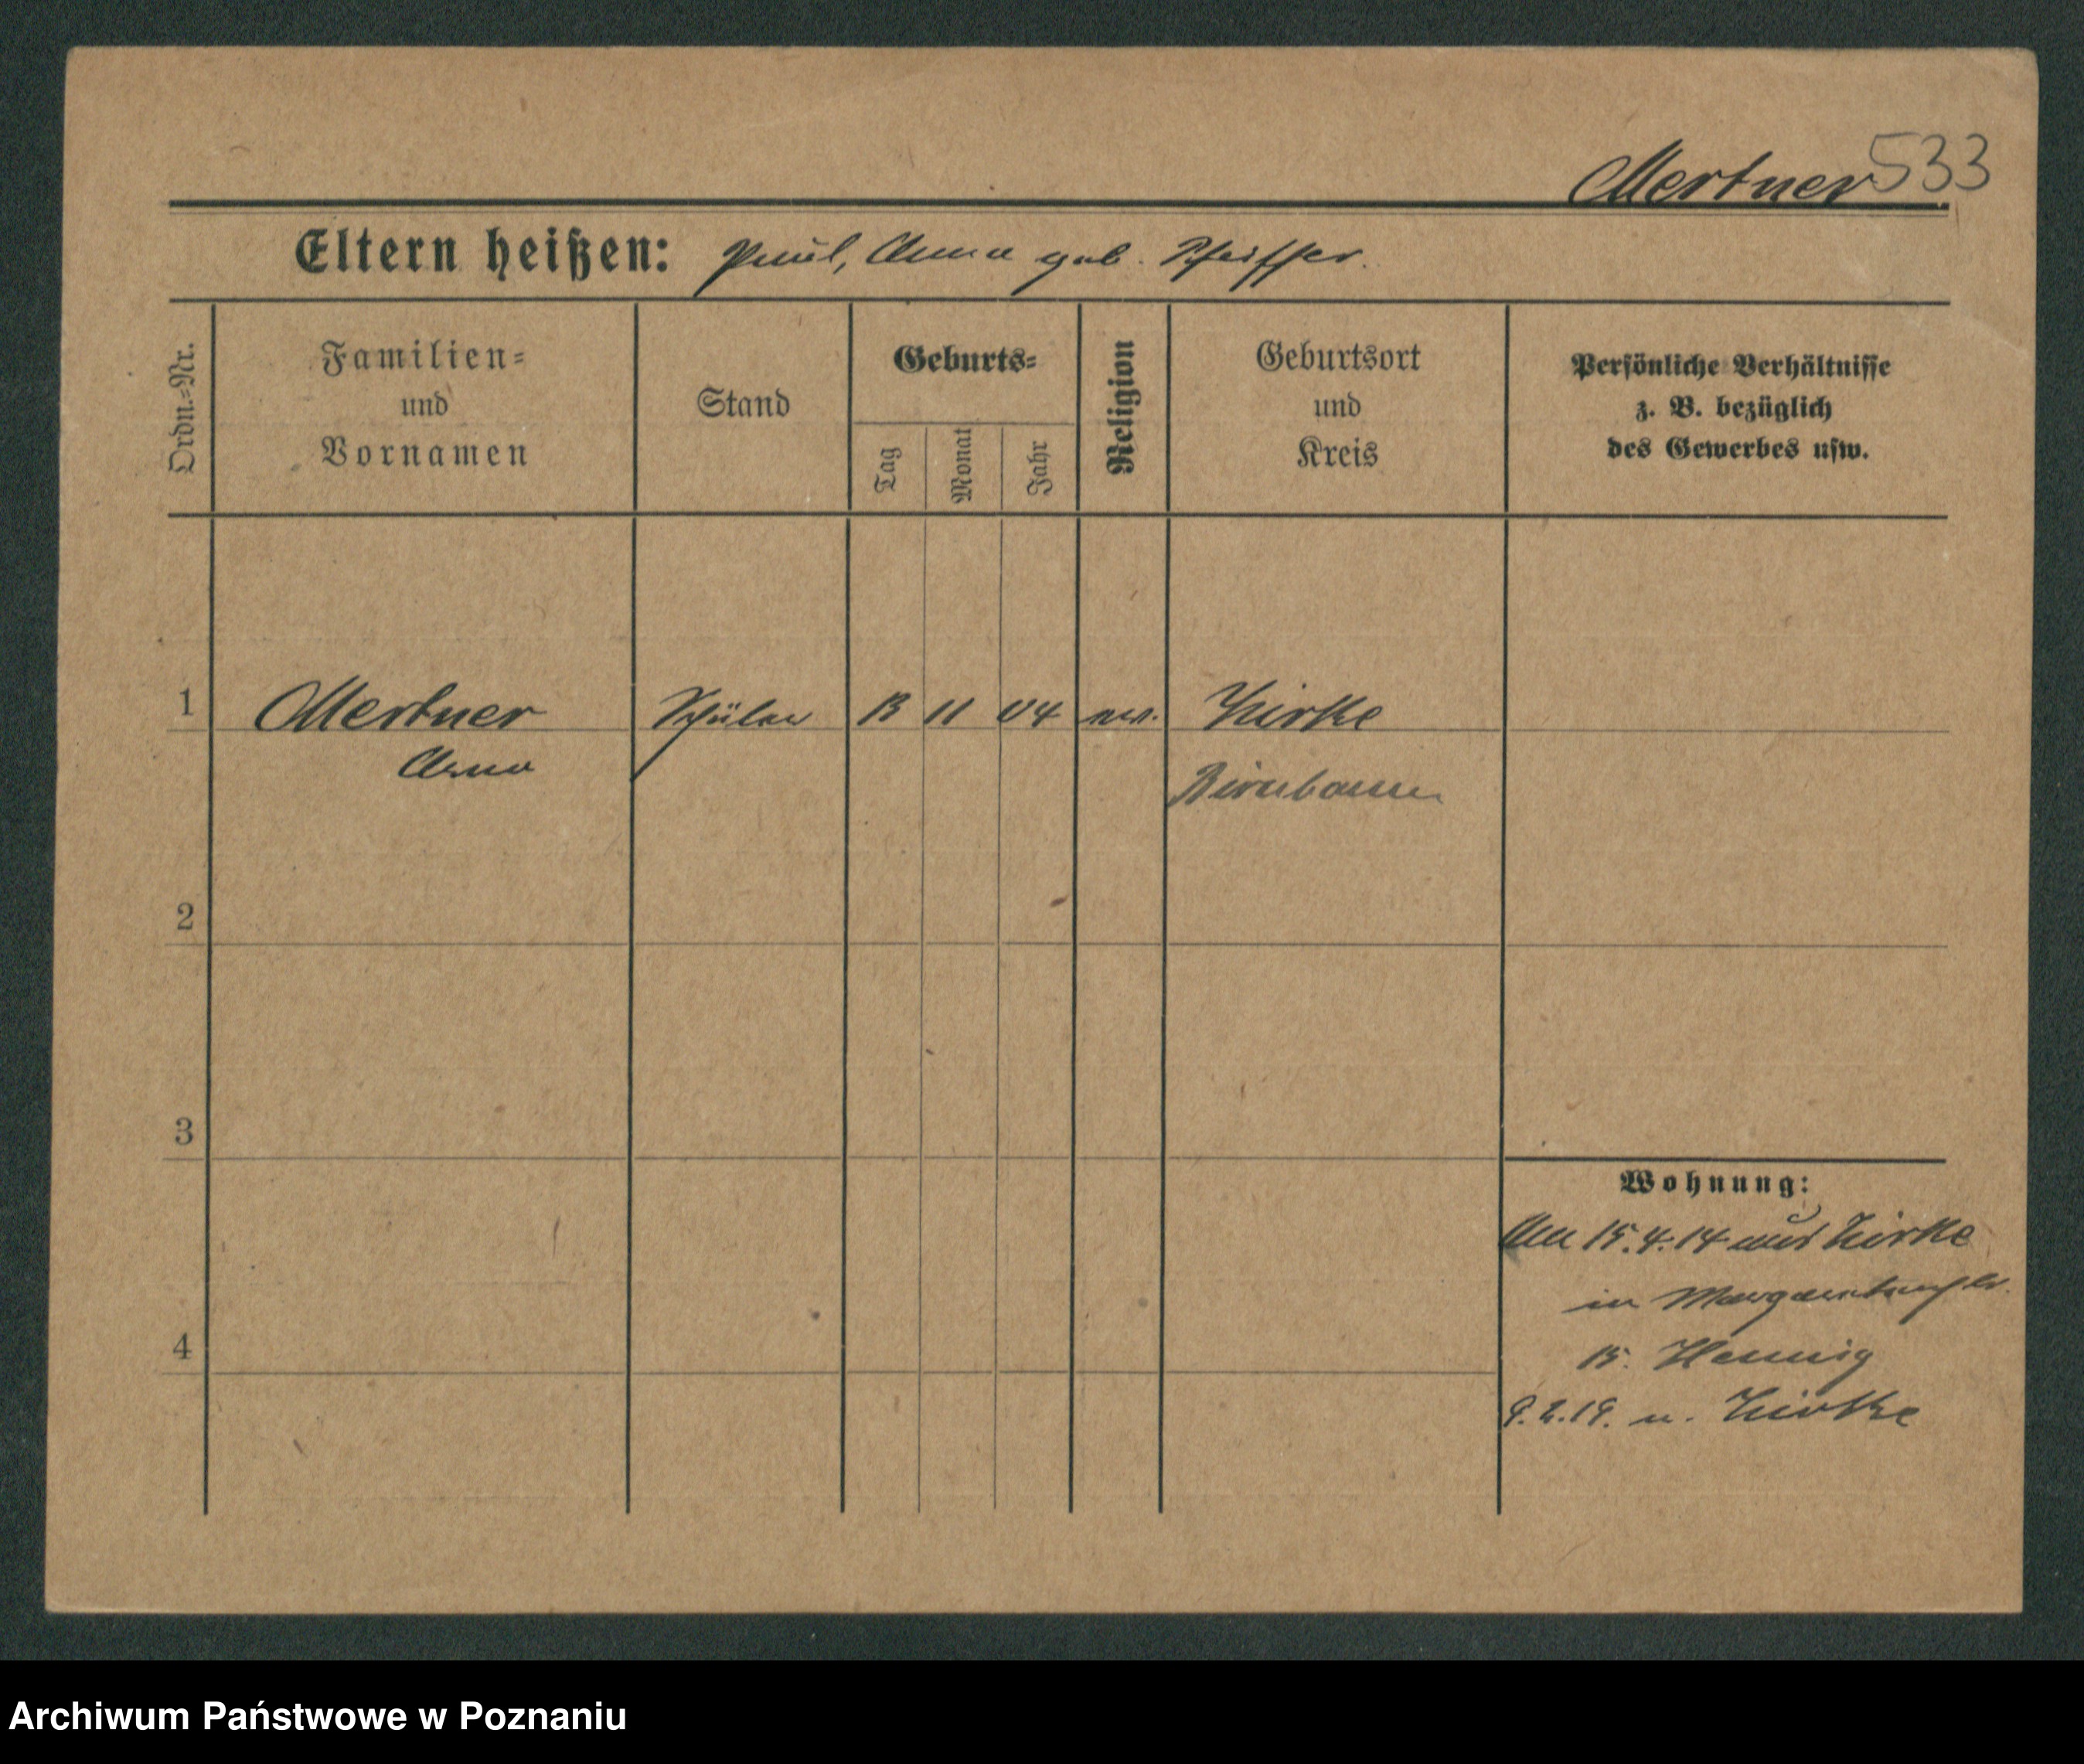 Mertner 533
Eltern heißen: Paul, Anna geb. Pfeiffer.
Ordn.-Nr.
Familien-
und
Vornamen
Stand
Geburts-
Tag
Monat
Jahr
Religion
Geburtsort
und
Kreis
Persönliche Verhältnisse
z. B. bezüglich
des Gewerbes usw.
1 Mertner Schüler 13 11 04 Zirke
Arno
Birnbaum
2
3
4
Wohnung:
Am 15.4.14 aus Zirke
in
15. Hennig
9.2.19. n. Zirke
Archiwum Państwowe w Poznaniu